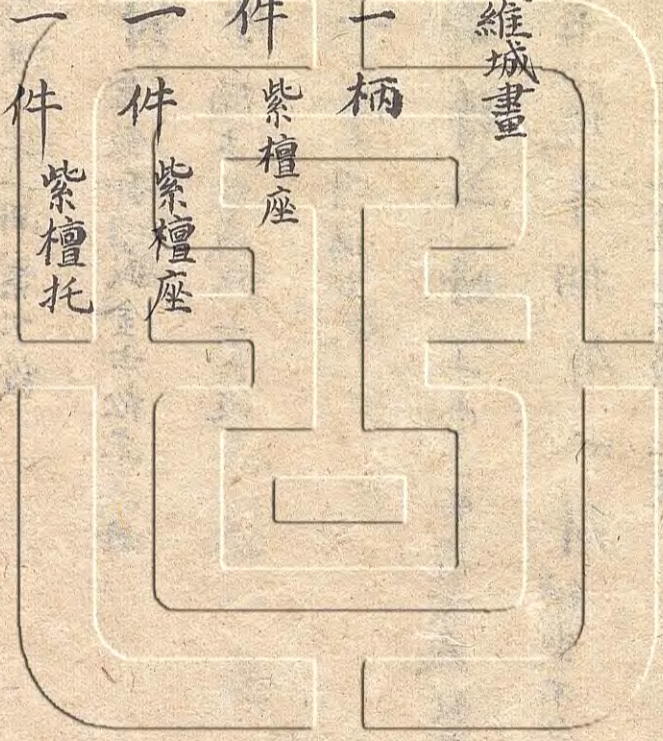 維城畫
一柄
件 紫檀座
一件 紫檀座
一件 紫檀托